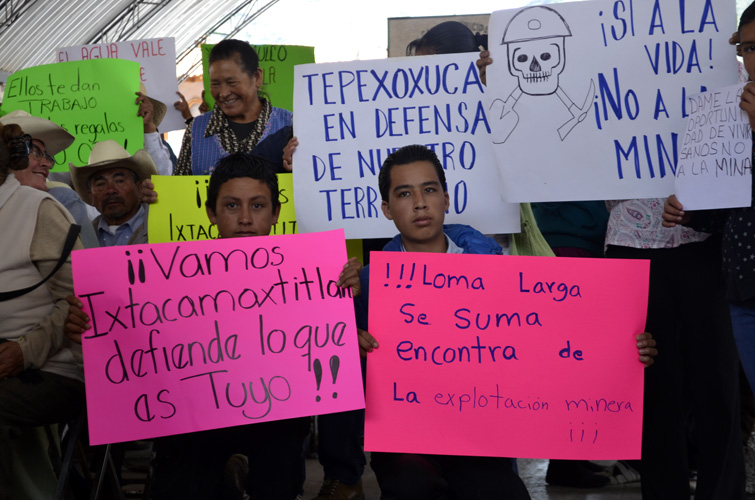 EL AGUA VALE
Ellos te dan
TRABAJO
regalas
IXTACAMAXTITLA
TEPEXOXUCA
EN DEFENSA
DE NUESTRO
TERR
¡SI A LA
VIDA!
¡NO A LA
MIN
DAME LA
OPORTUNI
DAD DE VIVIR
SANOS NO A
LA MINA
¡¡Vamos
Ixtacamaxtitlan
defiende lo que
as Tuyo !!
!!!Loma Larga
Se Suma
encontra de
La explotación minera
¡¡¡